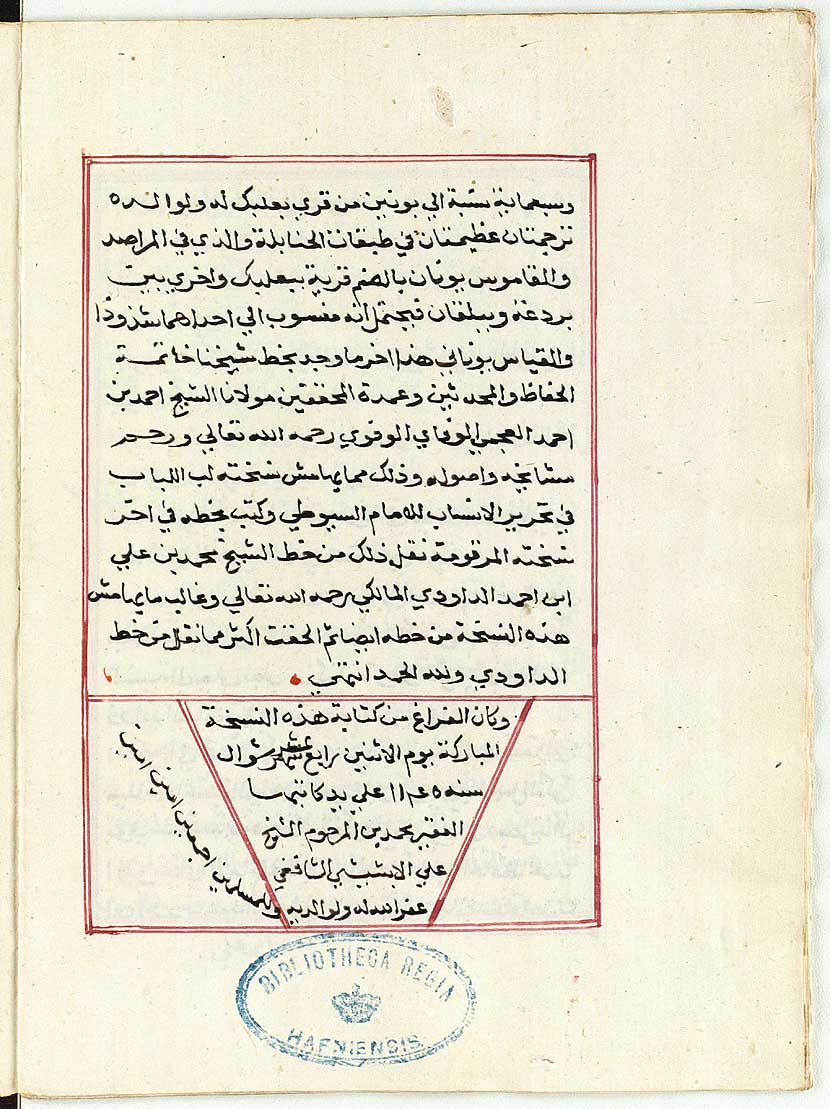 وسبعماية نسبة الي يونين من قري بعلبك له ولوالده
ترجمتان عظيمتان في طبقات الحنابلة والذي في المراصد
والقاموس يونان بالضم قرية ببعلبك واخري بين
بردعة وبيلقان فيحتمل انه منسوب الي احداهما شذوذا
والقياس يوناني هذا اخر ما وجد بخط شيخنا خاتمة
الحفاظ والمحدثين وعمدة المحققين مولانا الشيخ احمد بن
احمد العجمي الوفاي الوفوي رحمه الله تعالي ورحم
مشايخه واصوله وذلك مما بهامش نسخته لب اللباب
في تحرير الانساب للامام السيوطي وكتب بخطه في اخر
نسخته المرقومة نقل ذلك من خط الشيخ محمد بن علي
ابن احمد الداودي المالكي رحمه الله تعالي وغالب ما بهامش
هذه النسخة من خطه ايضا ثم الحقت اكثر مما نقل من خط
الداودي ولله الحمد انتهي
وكان الفراغ من كتابة هذه النسخة
المباركة يوم الاثنين رابع عشر شوال
سنه ١١٤٥ علي يد كاتبها
الفقير محمد بن المرحوم الشيخ
علي الابشيشي الشافعي
غفر الله له ولوالديه
وللمسلمين اجمعين امين امين
BIBLIOTHECA REGIA
HAFNIENSIS